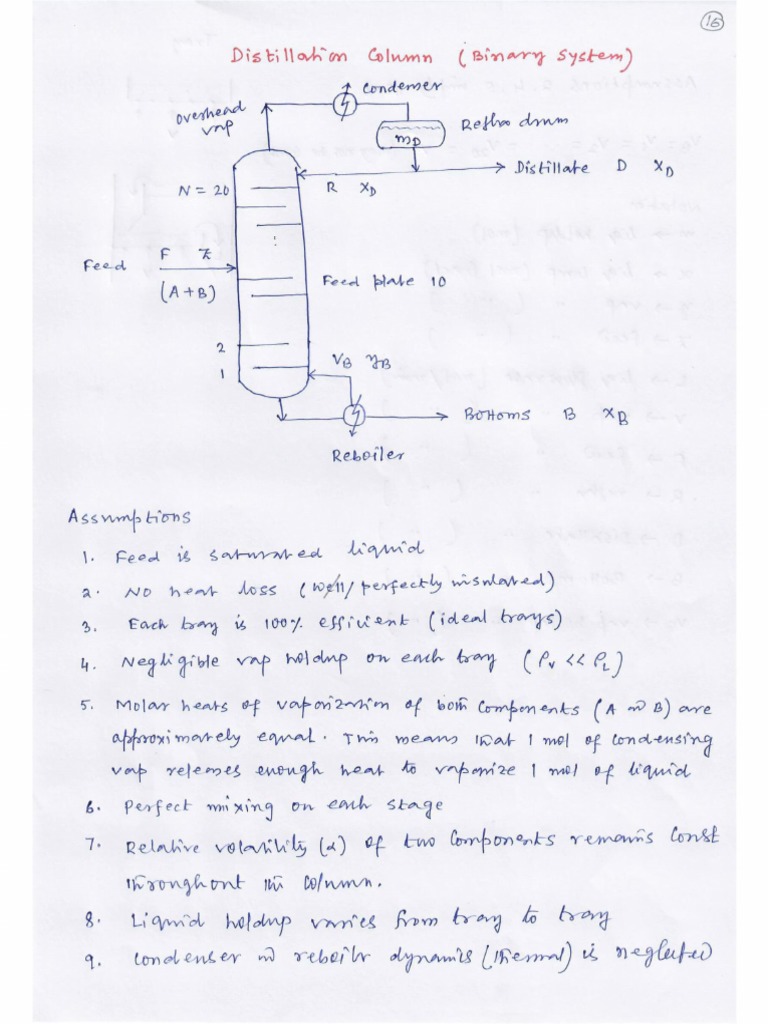 16
Distillation Column (Binary System)
Condenser
Overhead
vap
Reflux drum
mD
Distillate D XD
N = 20
R XD
F z
Feed
(A+B)
Feed plate 10
2
1
VB yB
Bottoms B XB
Reboiler
Assumptions
1. Feed is saturated liquid
2. No heat loss (well/perfectly insulated)
3. Each tray is 100% efficient (ideal trays)
4. Negligible vap holdup on each tray (ρv << ρL)
5. Molar heats of vaporization of both components (A & B) are
approximately equal. This means that 1 mol of condensing
vap releases enough heat to vaporize 1 mol of liquid
6. Perfect mixing on each stage
7. Relative volatility (α) of two components remains const
throughout the column.
8. Liquid holdup varies from tray to tray
9. Condenser & reboiler dynamics (thermal) is neglected